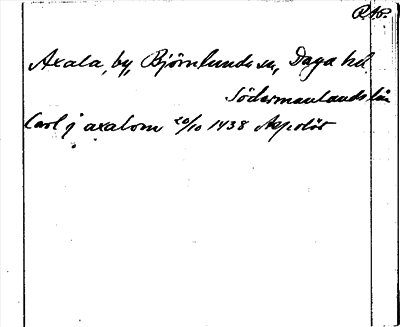 P. Ap.
Axala, by, Björnlunda sn, Daga hd.
Södermanlands län
Carl j axalom 20/10 1438 Asp. dör